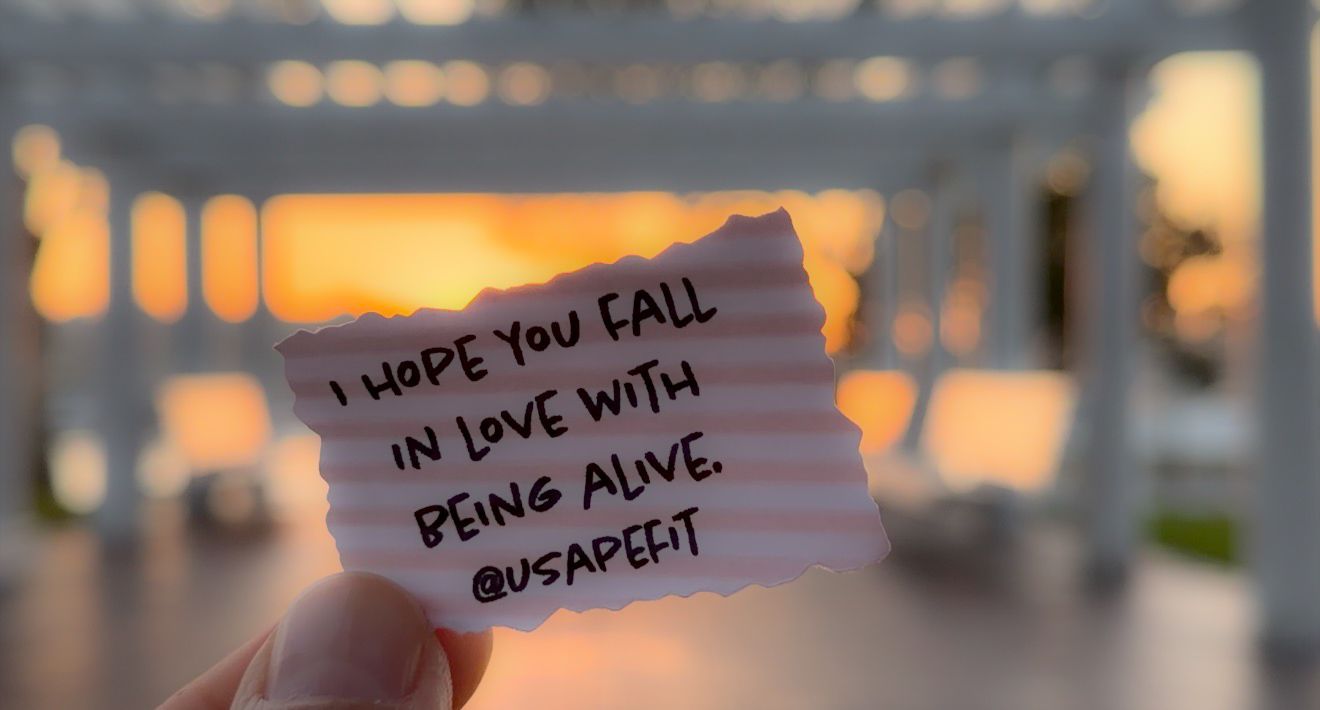 I HOPE YOU FALL
IN LOVE WITH
BEING ALIVE.
@USAPEFIT